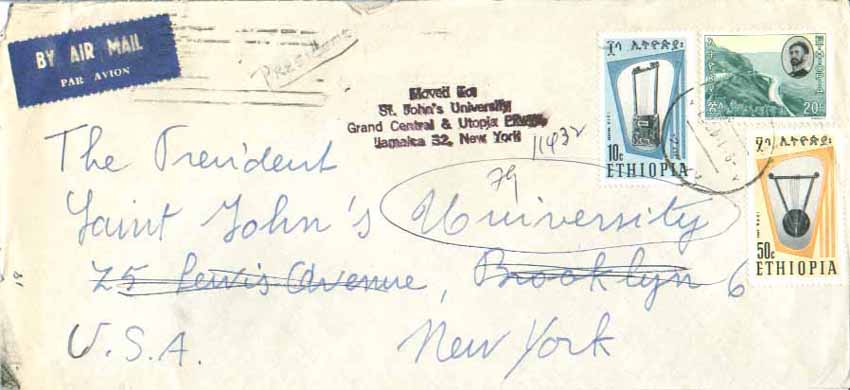 BY AIR MAIL
PAR AVION
PRESIDENT
Moved to:
St. John's University
Grand Central & Utopia
Jamaica 32, New York
11432
79
The President
Saint John's University
75 Lewis Avenue, Brooklyn 6
U.S.A. New York
ኢትዮጵያ
10c
ETHIOPIA
20c
ኢትዮጵያ
50c
ETHIOPIA